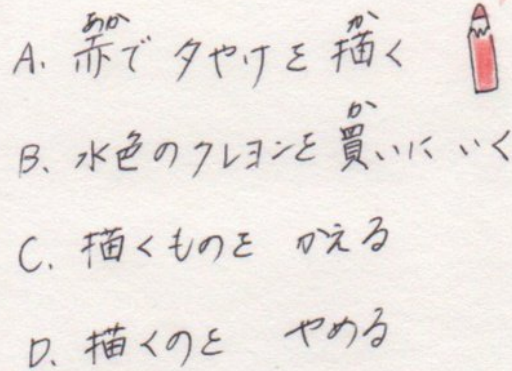 A. 赤で 夕やけを 描く
B. 水色のクレヨンを 買いに いく
C. 描くものを かえる
D. 描くのを やめる